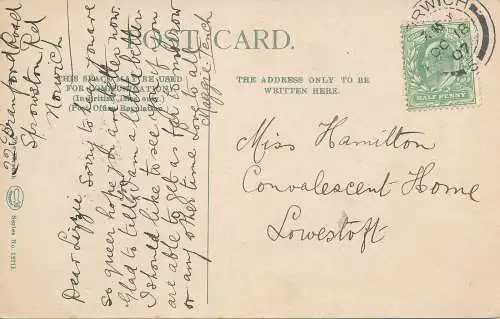 POST CARD.
THIS SPACE MAY BE USED
FOR COMMUNICATIONS
(In British Isles only.)
(Post Office Regulation.)
THE ADDRESS ONLY TO BE
WRITTEN HERE.
Branford Road
Sprowston Rd
Norwich
Dear Lizzie sorry to hear you are
so queer hope you are better now.
Glad to tell I am a bit better
I should like to see you if
are able to get as far tomorrow
or any other time love to all
Maggie
Miss Hamilton
Convalescent Home
Lowestoft
NORWICH
OC 18
07
HALF PENNY
Series No.